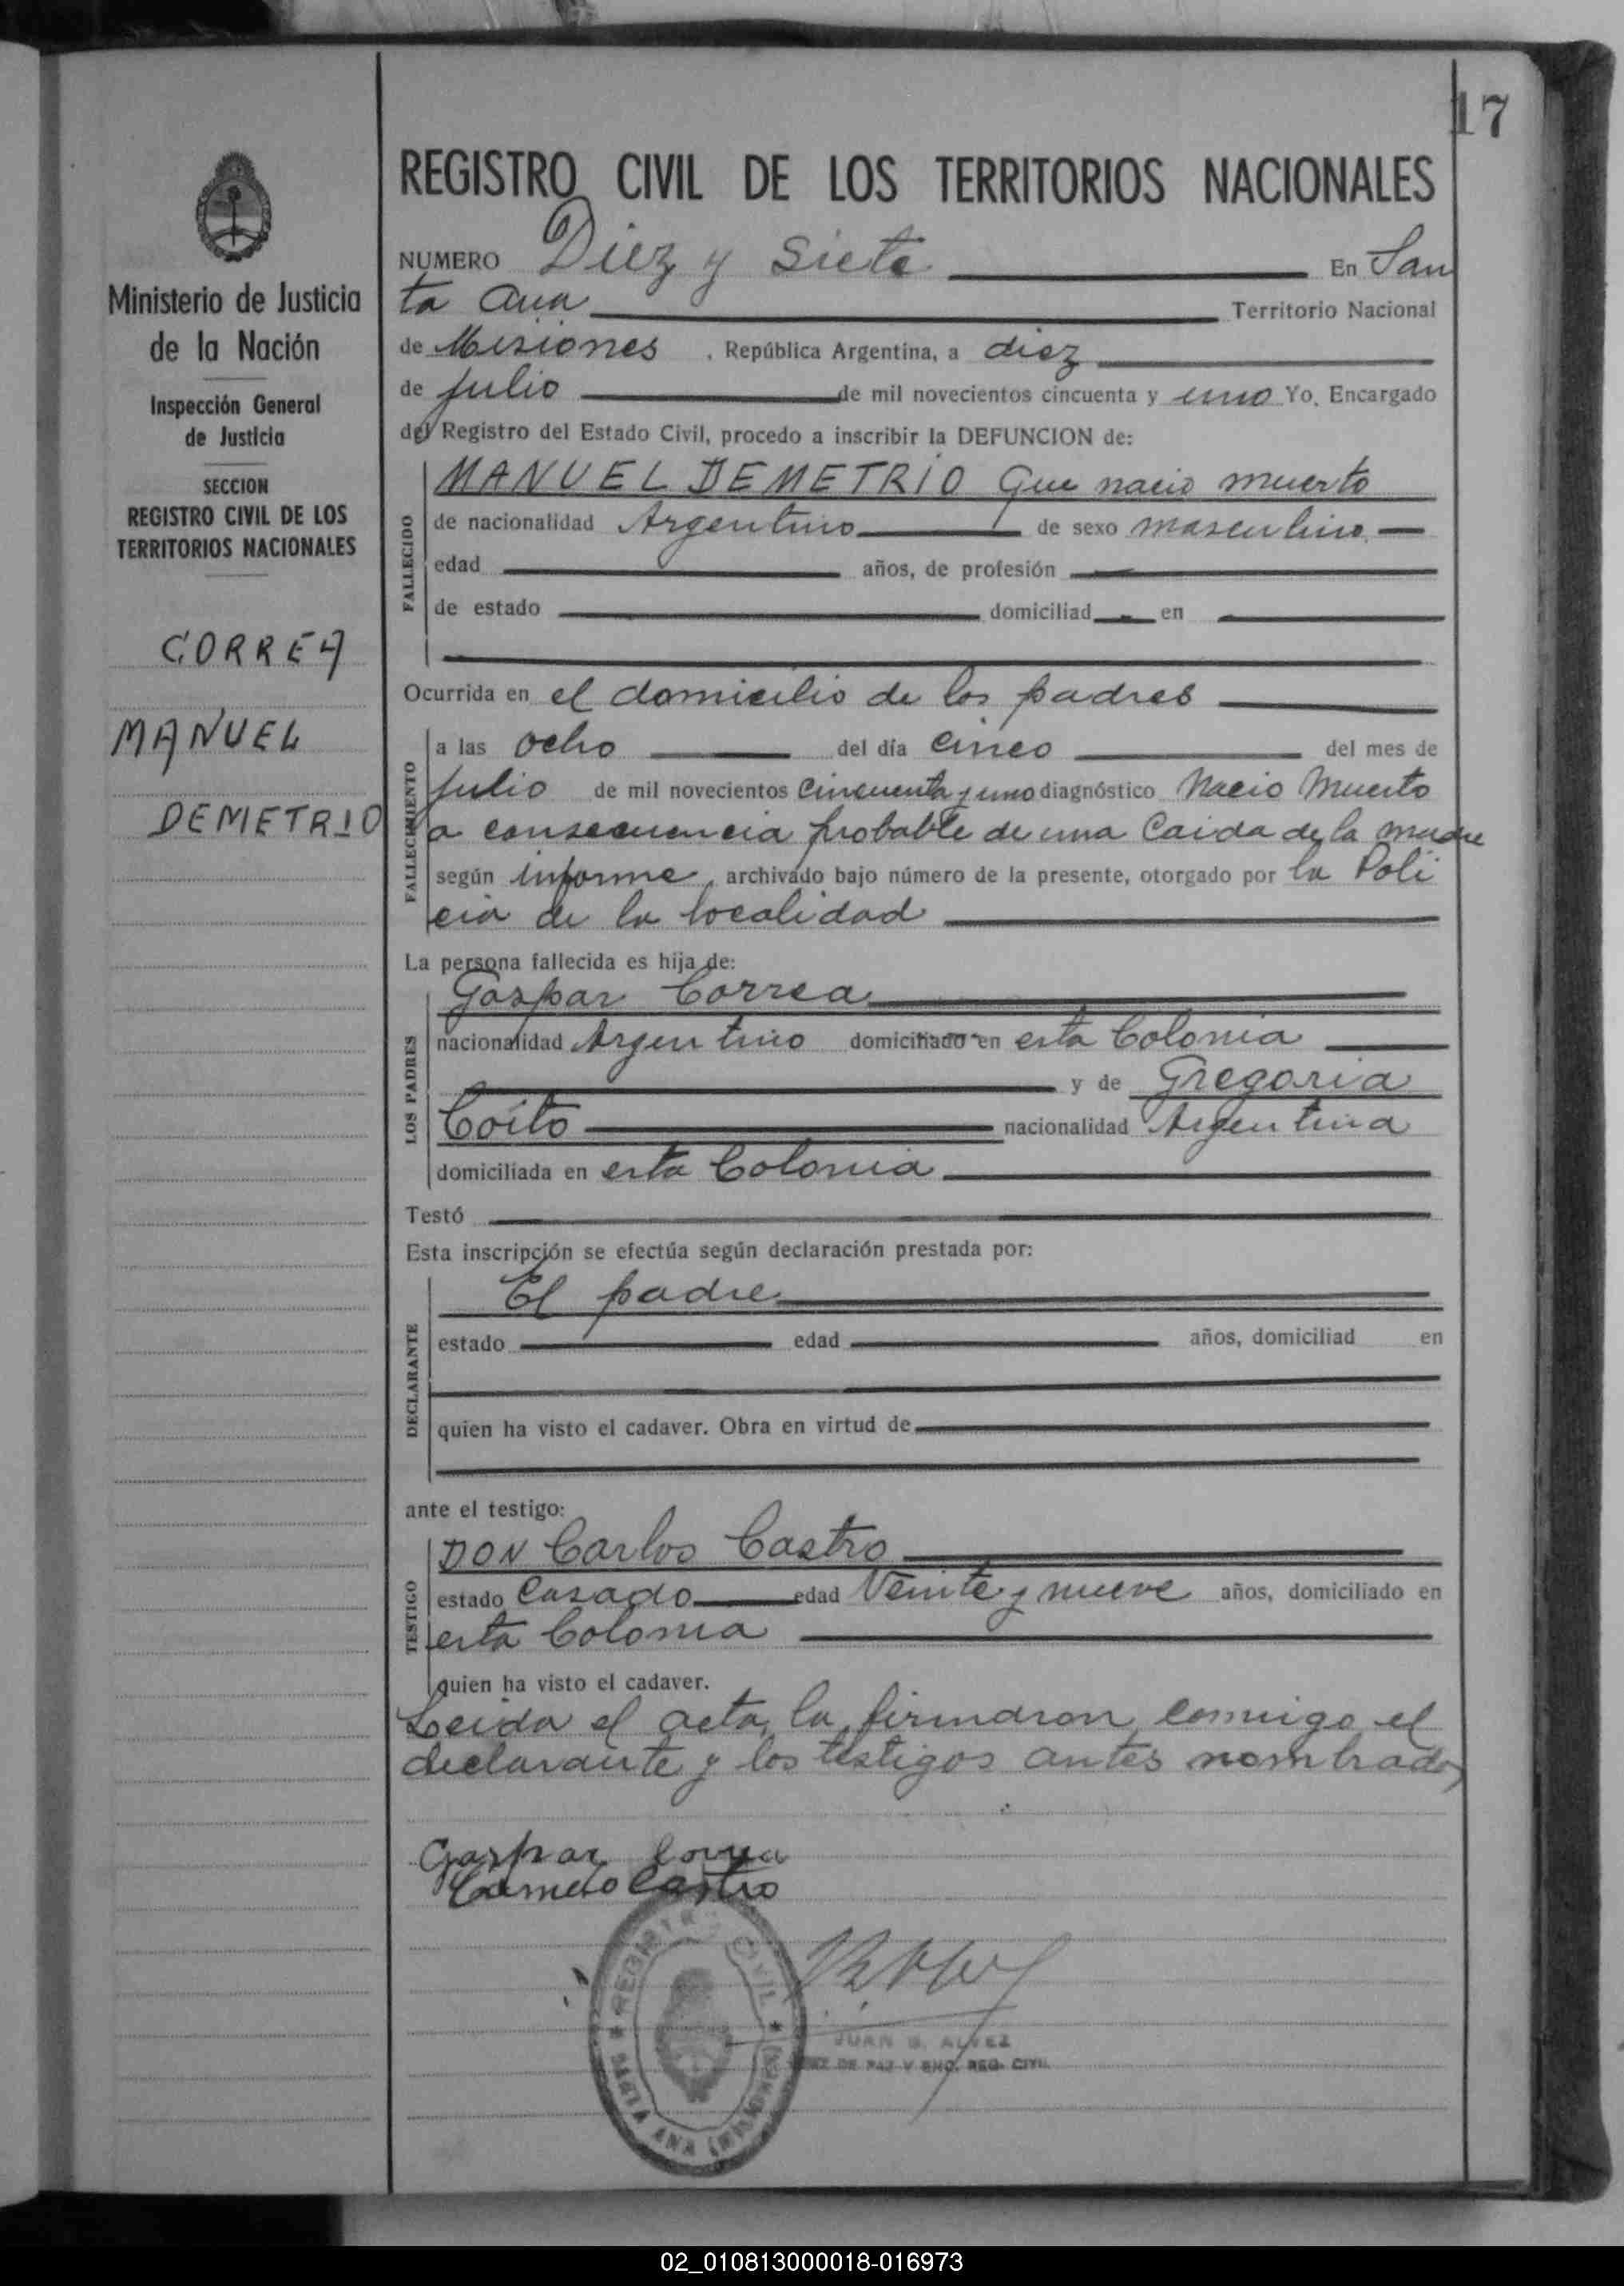 17
Ministerio de Justicia
de la Nación
Inspección General
de Justicia
SECCION
REGISTRO CIVIL DE LOS
TERRITORIOS NACIONALES
CORREA
MANUEL
DEMETRIO
REGISTRO CIVIL DE LOS TERRITORIOS NACIONALES
NUMERO Diez y Siete En San
ta Ana Territorio Nacional
de Misiones , República Argentina, a diez
de julio de mil novecientos cincuenta y uno Yo, Encargado
del Registro del Estado Civil, procedo a inscribir la DEFUNCION de:
FALLECIDO
MANUEL DEMETRIO Que nacio muerto
de nacionalidad Argentino de sexo masculino
edad años, de profesión
de estado domiciliad en
Ocurrida en el domicilio de los padres
FALLECIMIENTO
a las ocho del día cinco del mes de
julio de mil novecientos cincuenta y uno diagnóstico Nacio Muerto
a consecuencia probable de una Caida de la madre
según informe, archivado bajo número de la presente, otorgado por la Poli
cia de la localidad
La persona fallecida es hija de:
LOS PADRES
Gaspar Correa
nacionalidad Argentino domiciliado en esta Colonia
y de Gregoria
Coito nacionalidad Argentina
domiciliada en esta Colonia
Testó
Esta inscripción se efectúa según declaración prestada por:
DECLARANTE
El padre
estado edad años, domiciliad en
quien ha visto el cadaver. Obra en virtud de
ante el testigo:
TESTIGO
DON Carlos Castro
estado Casado edad Veinte y nueve años, domiciliado en
esta Colonia
quien ha visto el cadaver.
Leida el acta, la firmaron conmigo el
declarante y los testigos antes nombrados
Gaspar Correa
Castro
REGISTRO CIVIL
SANTA ANA (MISIONES)
JUAN B. ALVEZ
JUEZ DE PAZ Y ENC. REG. CIVIL
02_010813000018-016973